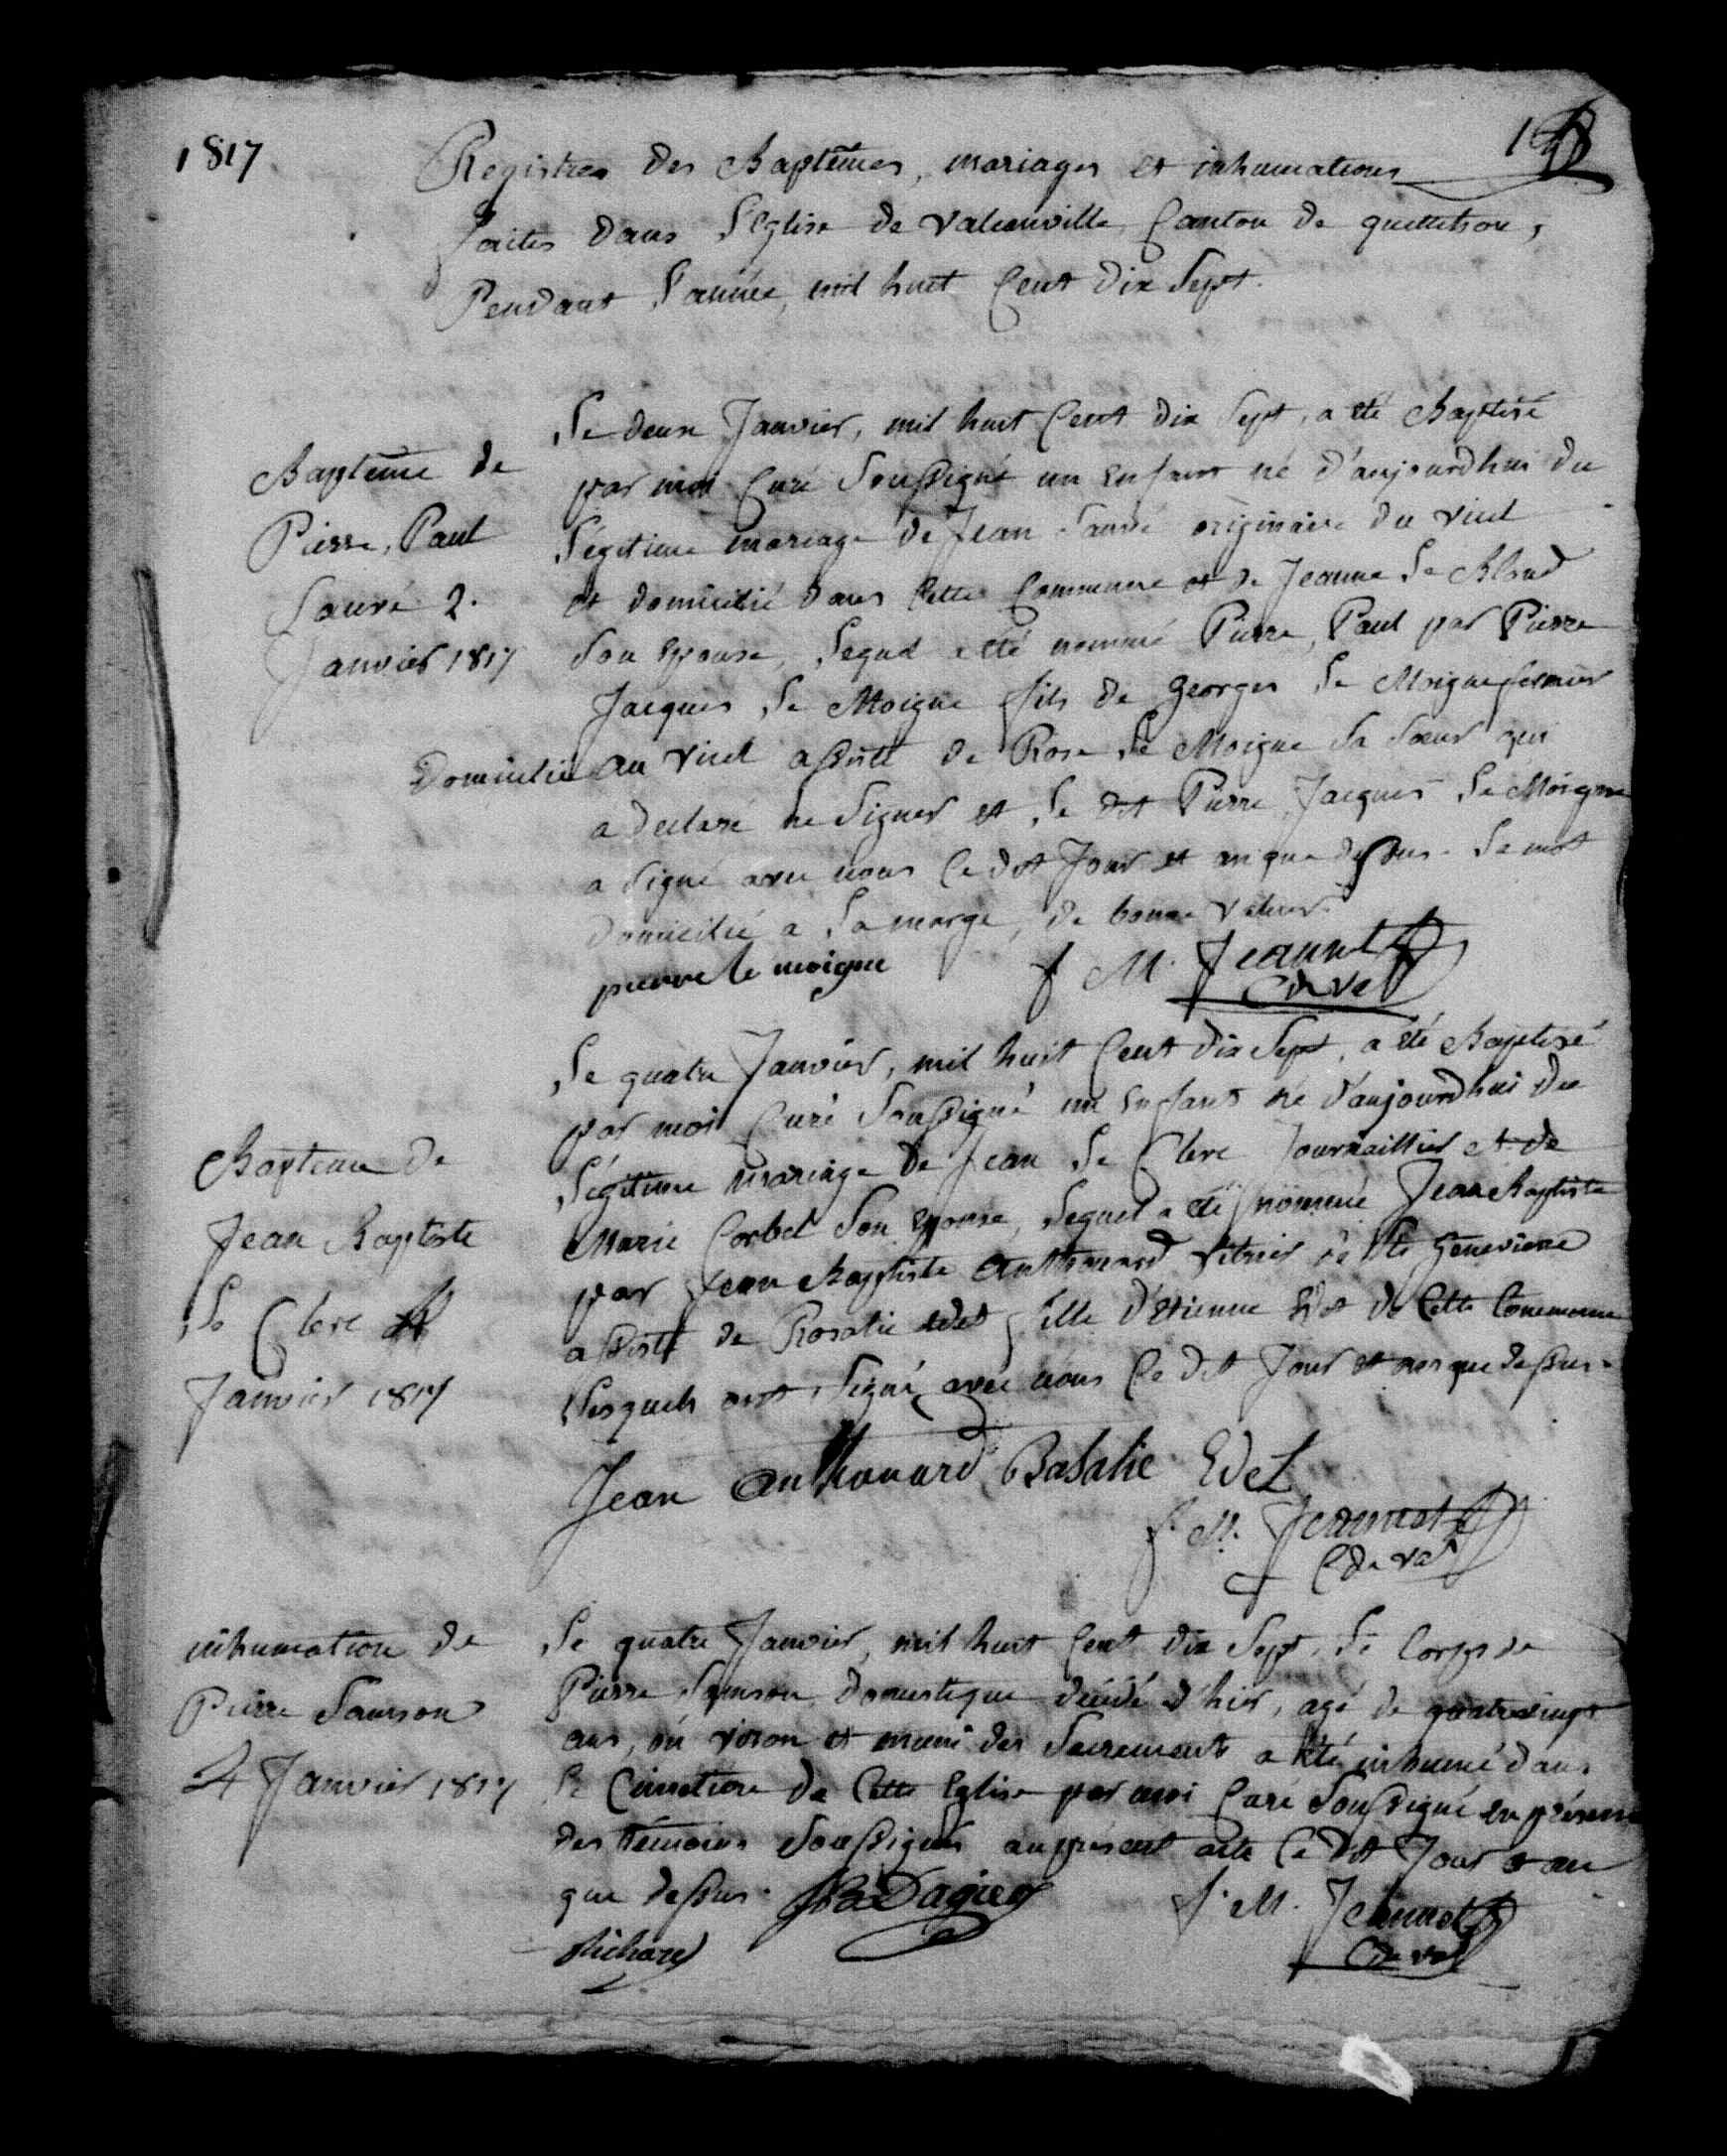 1817
Registres des Baptêmes, mariages et inhumations
faites dans l'Eglise de valcanville Canton de quettehou,
Pendant l'année, mil huit Cent dix Sept.
Baptême de
Pierre, Paul
Sauvé 2.
Janvier 1817
Le deux Janvier, mil huit Cent dix Sept, a été Baptisé
par moi Curé Soussigné un Enfant né d'aujourdhui du
légitime mariage de Jean Sauvé originaire du vicel
et domicilié dans Cette Commune et de Jeanne le Blond
Son Epouse, lequel a été nommé Pierre, Paul par Pierre
Jacques le Moigne fils de Georges le Moigne fermier
Domicilié au vicel assisté de Rose le Moigne Sa Sœur qui
a declaré ne Signer et le dit Pierre Jacques le Moigne
a Signé avec nous Ce dit Jour et an que dessus. Le mot
domicilié a la marge, de bonne valeur.
pierre le moigne
f M. Jeannet
C de val
Baptême de
Jean Baptiste
le Clerc 4
Janvier 1817
Le quatre Janvier, mil huit Cent dix Sept, a été Baptisé
par moi Curé Soussigné un Enfant né d'aujourdhui du
légitime mariage de Jean le Clerc Journaillier et de
Marie Corbet Son Epouse, lequel a été nommé Jean Baptiste
par Jean Baptiste Anthouard de Ste Genevieve
assisté de Rosalie Edet fille d'Etienne Edet de Cette Commune
lesquels ont Signé avec nous Ce dit Jour et an que dessus.
Jean anthouard Rosalie Edet
f. M. Jeannet
C de val
inhumation de
Pierre Samson
4 Janvier 1817
Le quatre Janvier, mil huit Cent dix Sept, le Corps de
Pierre Samson domestique décédé d'hier, agé de quatrevingt
ans, en viron et muni des Sacrements a été inhumé dans
le Cimetiere de Cette Eglise par moi Curé Soussigné en présence
des témoins Soussignés au présent acte Ce dit Jour et an
que dessus.
f. M. Jeannet
Richard
C de val